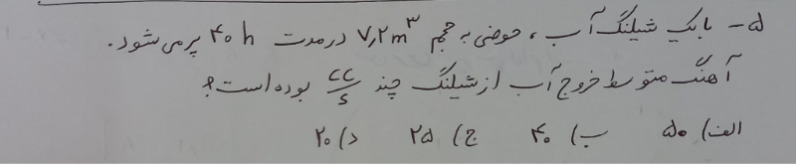 ۵- با یک شیلنگ آب، حوضی به حجم ۷٫۲ m³ در مدت ۴۰ h پر می شود.
آهنگ متوسط خروج آب از شیلنگ چند cc/s بوده است؟
الف) ۵۰ ب) ۴۰ ج) ۲۵ د) ۲۰